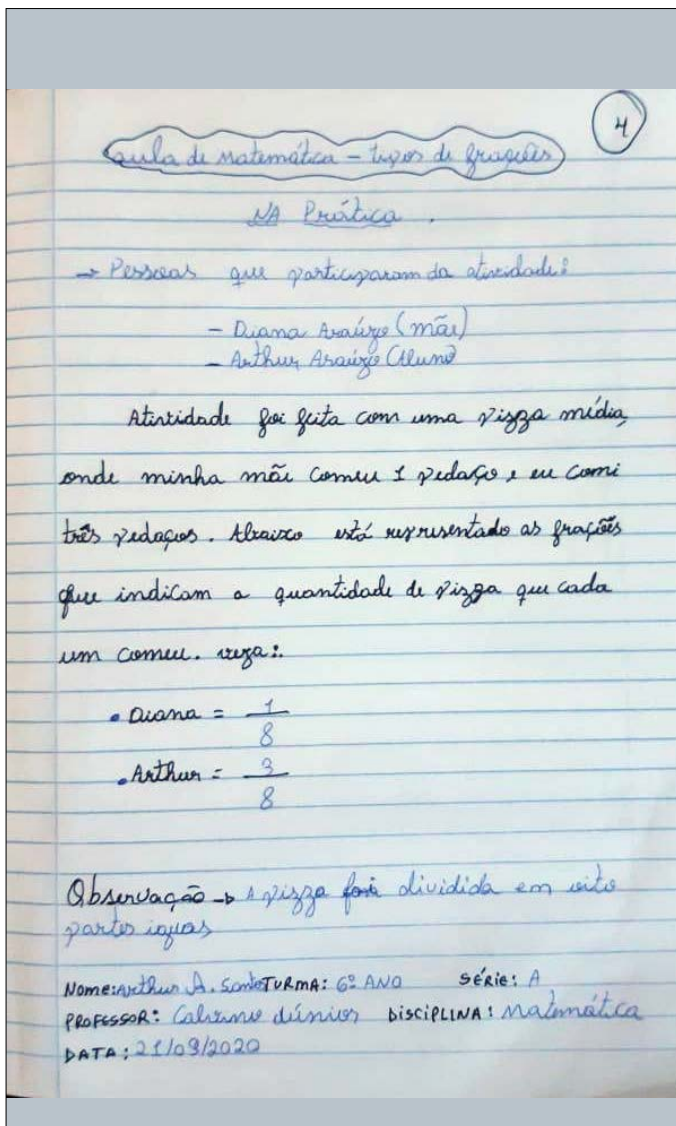 4
Aula de Matemática - tipos de frações
NA Prática.
→ Pessoas que participaram da atividade:
- Diana Araújo (mãe)
- Arthur Araújo (Aluno)
Atividade foi feita com uma pizza média,
onde minha mãe comeu 1 pedaço, e eu comi
três pedaços. Abaixo está representado as frações
que indicam a quantidade de pizza que cada
um comeu. veja:
• Diana = 1/8
• Arthur = 3/8
Observação → A pizza foi dividida em oito
partes iguas
Nome: Arthur A. Santos TURMA: 6º ANO SÉRIE: A
PROFESSOR: Júnior DISCIPLINA: Matemática
DATA: 21/09/2020